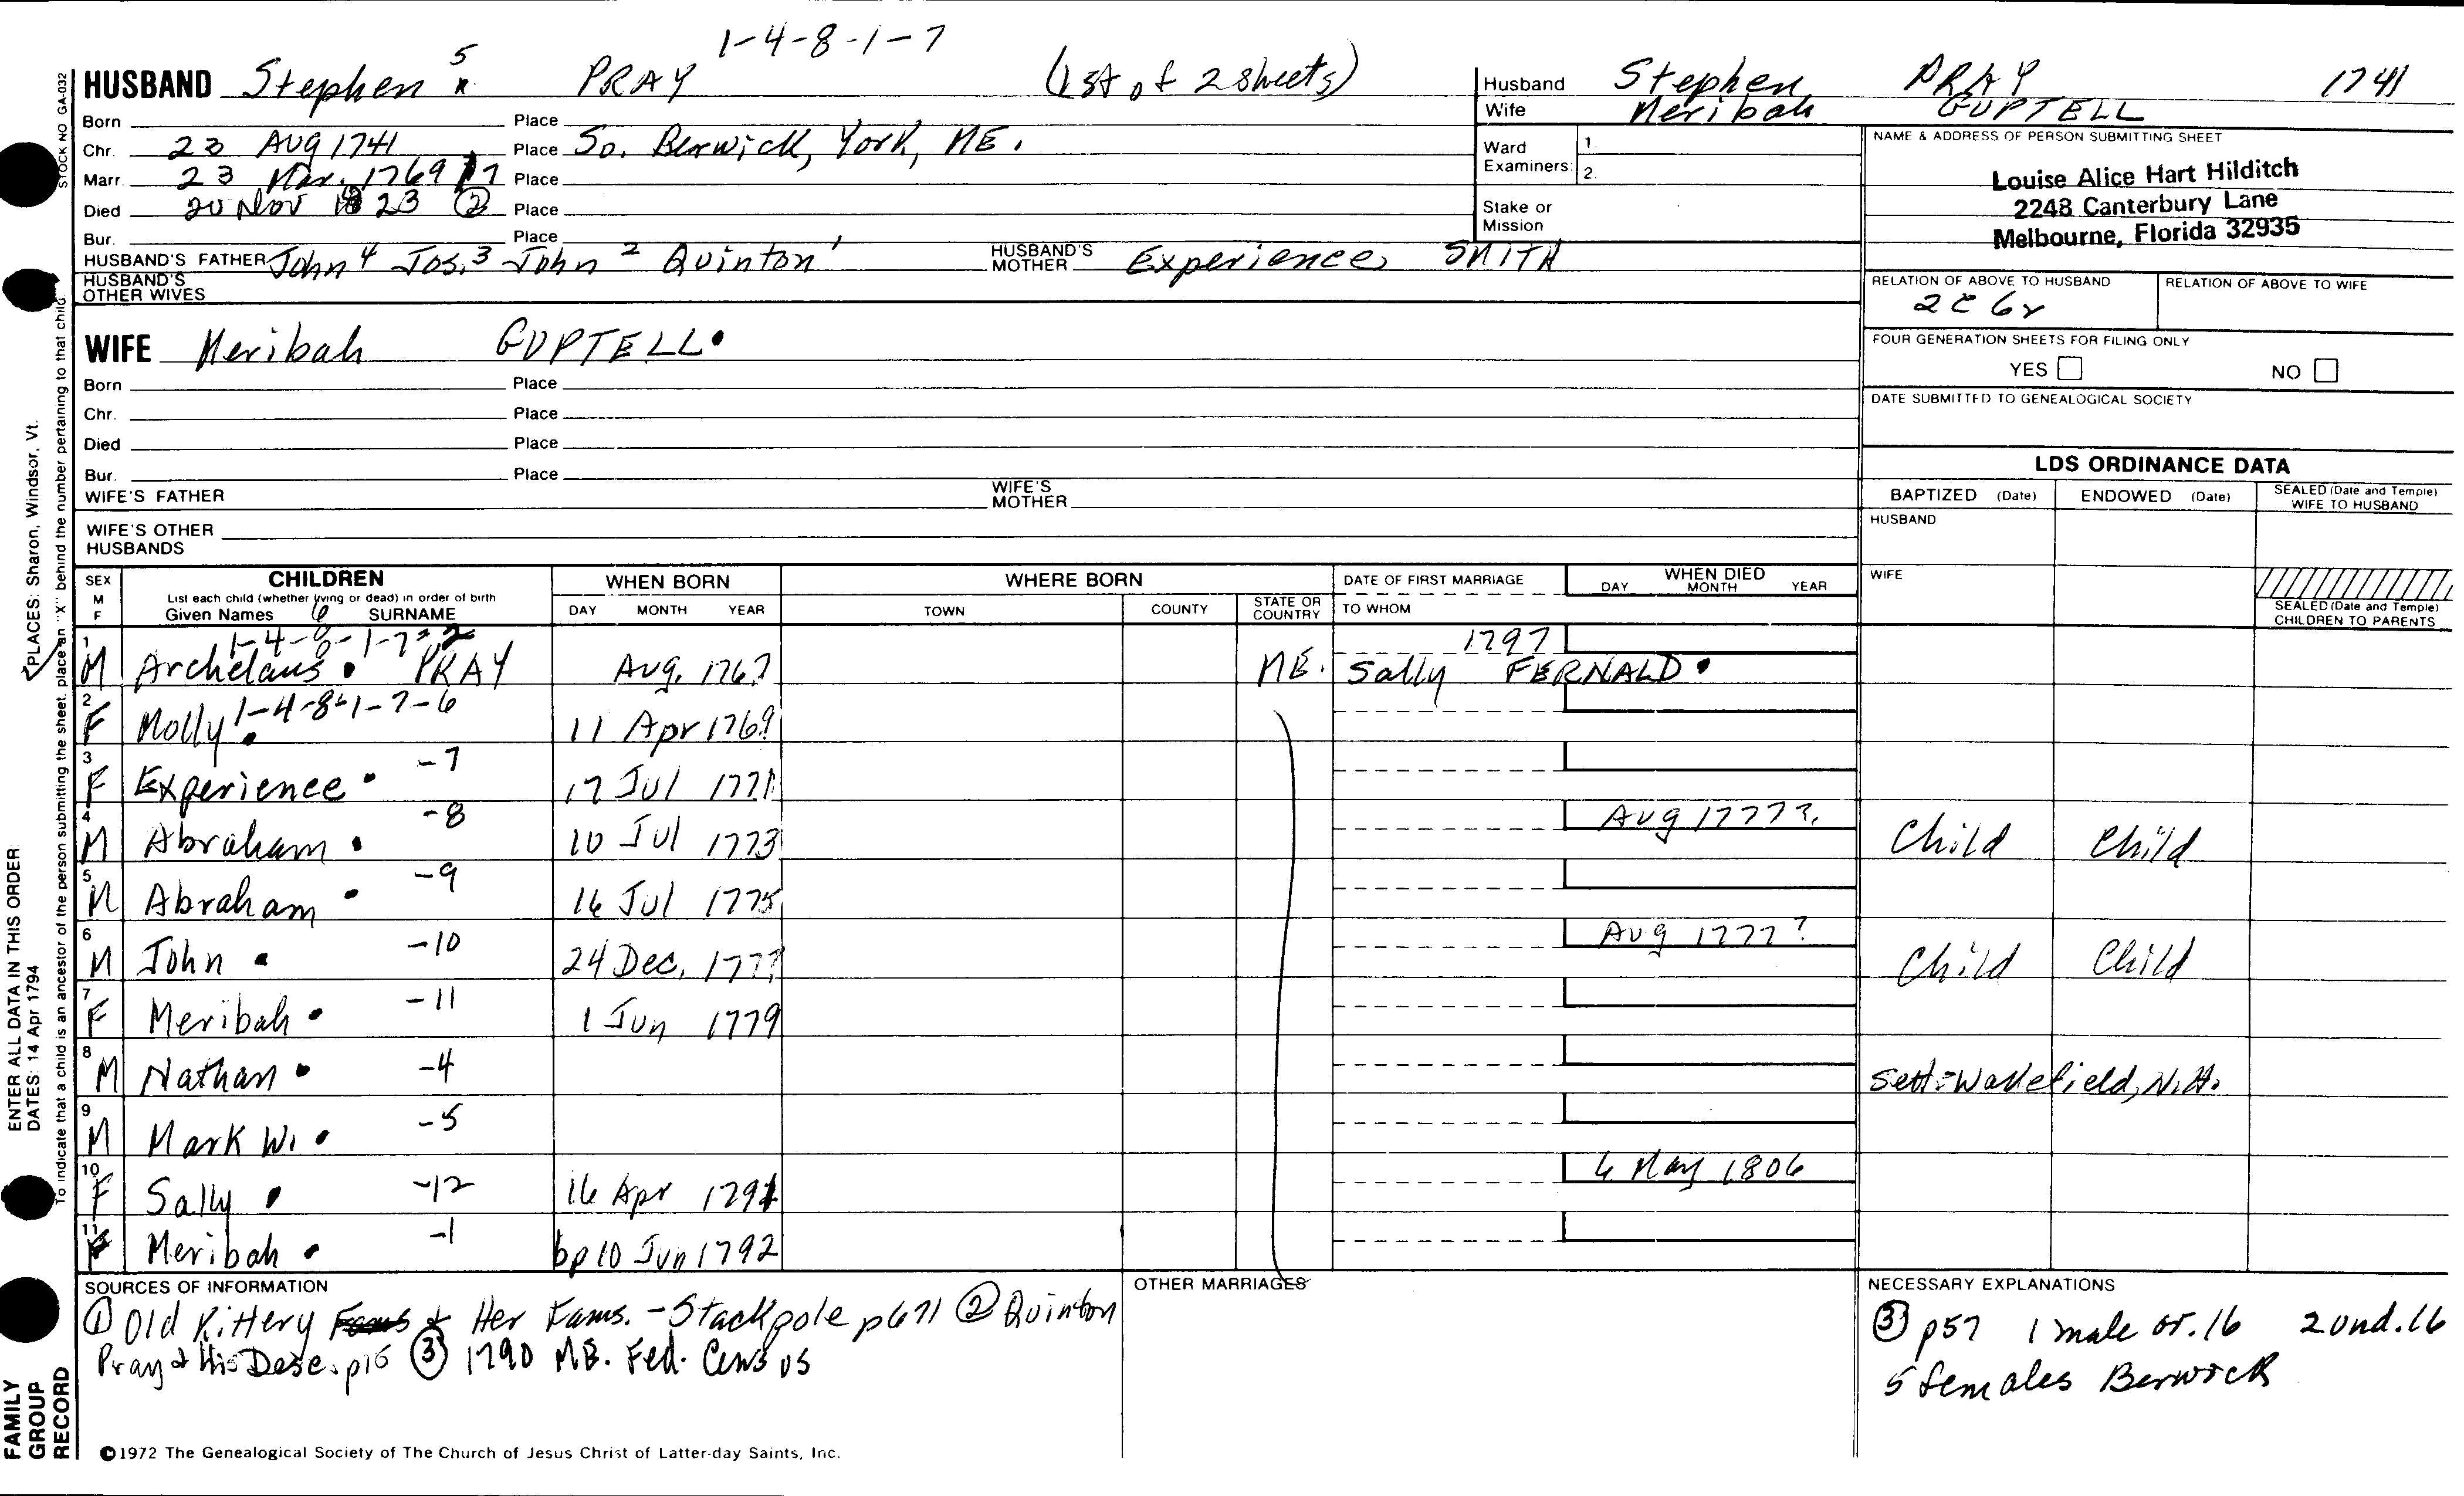 1-4-8-1-7
HUSBAND Stephen 5 PRAY (1st of 2 sheets)
Born Place
Chr. 23 AUG 1741 Place So. Berwick, York, ME.
Marr. 23 Mar. 1769 Place
Died 20 Nov 1823 ② Place
Bur. Place
HUSBAND'S FATHER John 4 Jos. 3 John 2 Quinton 1 HUSBAND'S MOTHER Experience SMITH
HUSBAND'S OTHER WIVES
WIFE Meribah GUPTELL.
Born Place
Chr. Place
Died Place
Bur. Place
WIFE'S FATHER WIFE'S MOTHER
WIFE'S OTHER HUSBANDS
Husband Stephen PRAY 1741
Wife Meribah GUPTELL
Ward Examiners: 1. 2.
Stake or Mission
NAME & ADDRESS OF PERSON SUBMITTING SHEET
Louise Alice Hart Hilditch
2248 Canterbury Lane
Melbourne, Florida 32935
RELATION OF ABOVE TO HUSBAND RELATION OF ABOVE TO WIFE
2C 6r
FOUR GENERATION SHEETS FOR FILING ONLY
YES NO
DATE SUBMITTED TO GENEALOGICAL SOCIETY
LDS ORDINANCE DATA
BAPTIZED (Date) ENDOWED (Date) SEALED (Date and Temple) WIFE TO HUSBAND
HUSBAND
WIFE
SEALED (Date and Temple) CHILDREN TO PARENTS
SEX M F CHILDREN WHEN BORN WHERE BORN DATE OF FIRST MARRIAGE WHEN DIED
List each child (whether living or dead) in order of birth
Given Names 6 SURNAME DAY MONTH YEAR TOWN COUNTY STATE OR COUNTRY TO WHOM DAY MONTH YEAR
1-4-8-1-7-2 1797
1 M Archelaus. PRAY Aug. 1767 ME. Sally FERNALD.
2 F Molly. 1-4-8-1-7-6 11 Apr 1769
3 F Experience. -7 17 Jul 1771
4 M Abraham. -8 10 Jul 1773 Aug 1777?. Child Child
5 M Abraham. -9 16 Jul 1775
6 M John. -10 24 Dec. 1777 Aug 1777? Child Child
7 F Meribah. -11 1 Jun 1779
8 M Nathan. -4 Sett=Wakefield, N.H.
9 M Mark W. -5
10 F Sally. -12 16 Apr 1791 6 May 1806
11 F Meribah. -1 bp 10 Jun 1792
SOURCES OF INFORMATION
① Old Kittery & Her Fams. - Stackpole p671 ② Quinton
Pray & His Desc. p15 ③ 1790 ME. Fed. Census
OTHER MARRIAGES
NECESSARY EXPLANATIONS
③ p57 1 male ov. 16 2 und. 16
5 females Berwick
©1972 The Genealogical Society of The Church of Jesus Christ of Latter-day Saints, Inc.
FAMILY
GROUP
RECORD
ENTER ALL DATA IN THIS ORDER:
DATES: 14 Apr 1794
PLACES: Sharon, Windsor, Vt.
To indicate that a child is an ancestor of the person submitting the sheet, place an "X" behind the number pertaining to that child.
STOCK NO GA-032